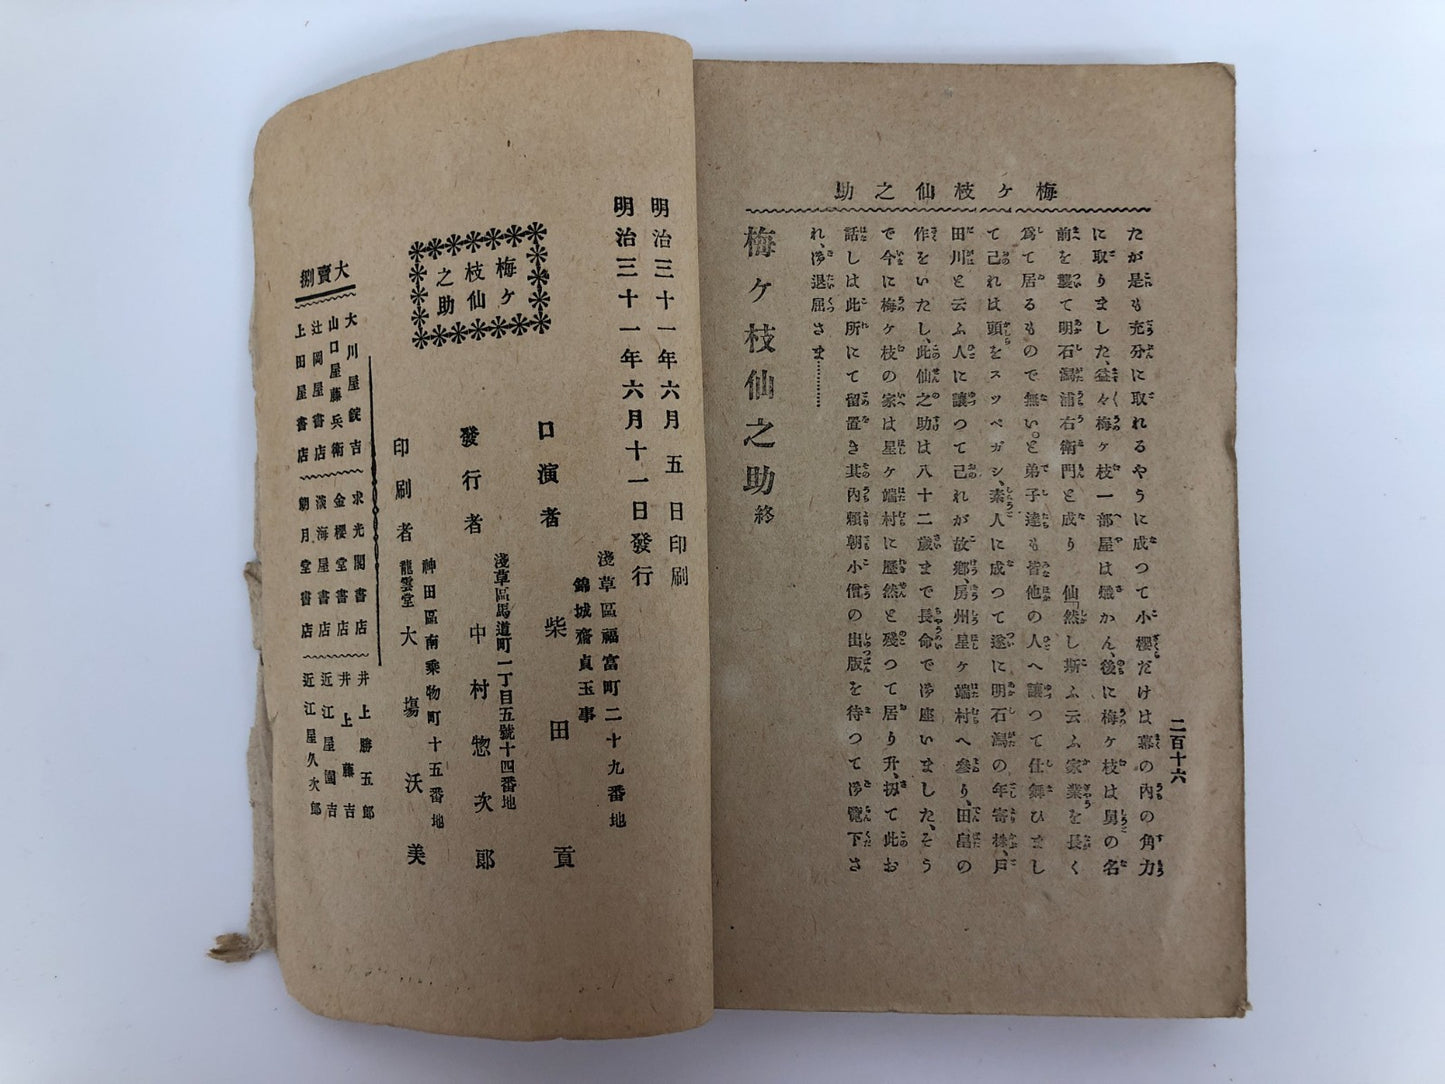 梅ヶ枝仙之助
二百十六
たが是も充分に取れるやうに成つて小櫻だけは幕の內の角力
に取りました、益々梅ヶ枝一部屋は熾かん、後に梅ヶ枝は舅の名
前を襲て明石潟浦右衛門と成り 仙「然し斯ふ云ふ家業を長く
爲て居るもので無い。と弟子達も皆他の人へ讓つて仕舞ひまし
て己れは頭をスッペガシ、素人に成つて遂に明石潟の年寄株、戸
田川と云ふ人に讓つて己れが故鄕、房州星ヶ端村へ參り、田畠の
作をいたし、此仙之助は八十二歲まで長命で御座いました、そう
で今に梅ヶ枝の家は星ヶ端村に歷然と残つて居り升、扨て此お
話しは此所にて留置き其內賴朝小僧の出版を待つて御覽下さ
れ、御退屈さま…………
梅ヶ枝仙之助 終
明治三十一年六月五日印刷
明治三十一年六月十一日發行
梅ヶ
枝仙
之助
淺草區福富町二十九番地
錦城齋貞玉事
口演者 柴田貢
淺草區馬道町一丁目五號十四番地
發行者 中村惣次郎
神田區南乘物町十五番地
印刷者 龍雲堂 大塲沃美
大賣捌
大川屋錠吉 求光閣書店 井上勝五郎
山口屋藤兵衛 金櫻堂書店 井上藤吉
辻岡屋書店 淡海屋書店 近江屋園吉
上田屋書店 朝月堂書店 近江屋久次郎